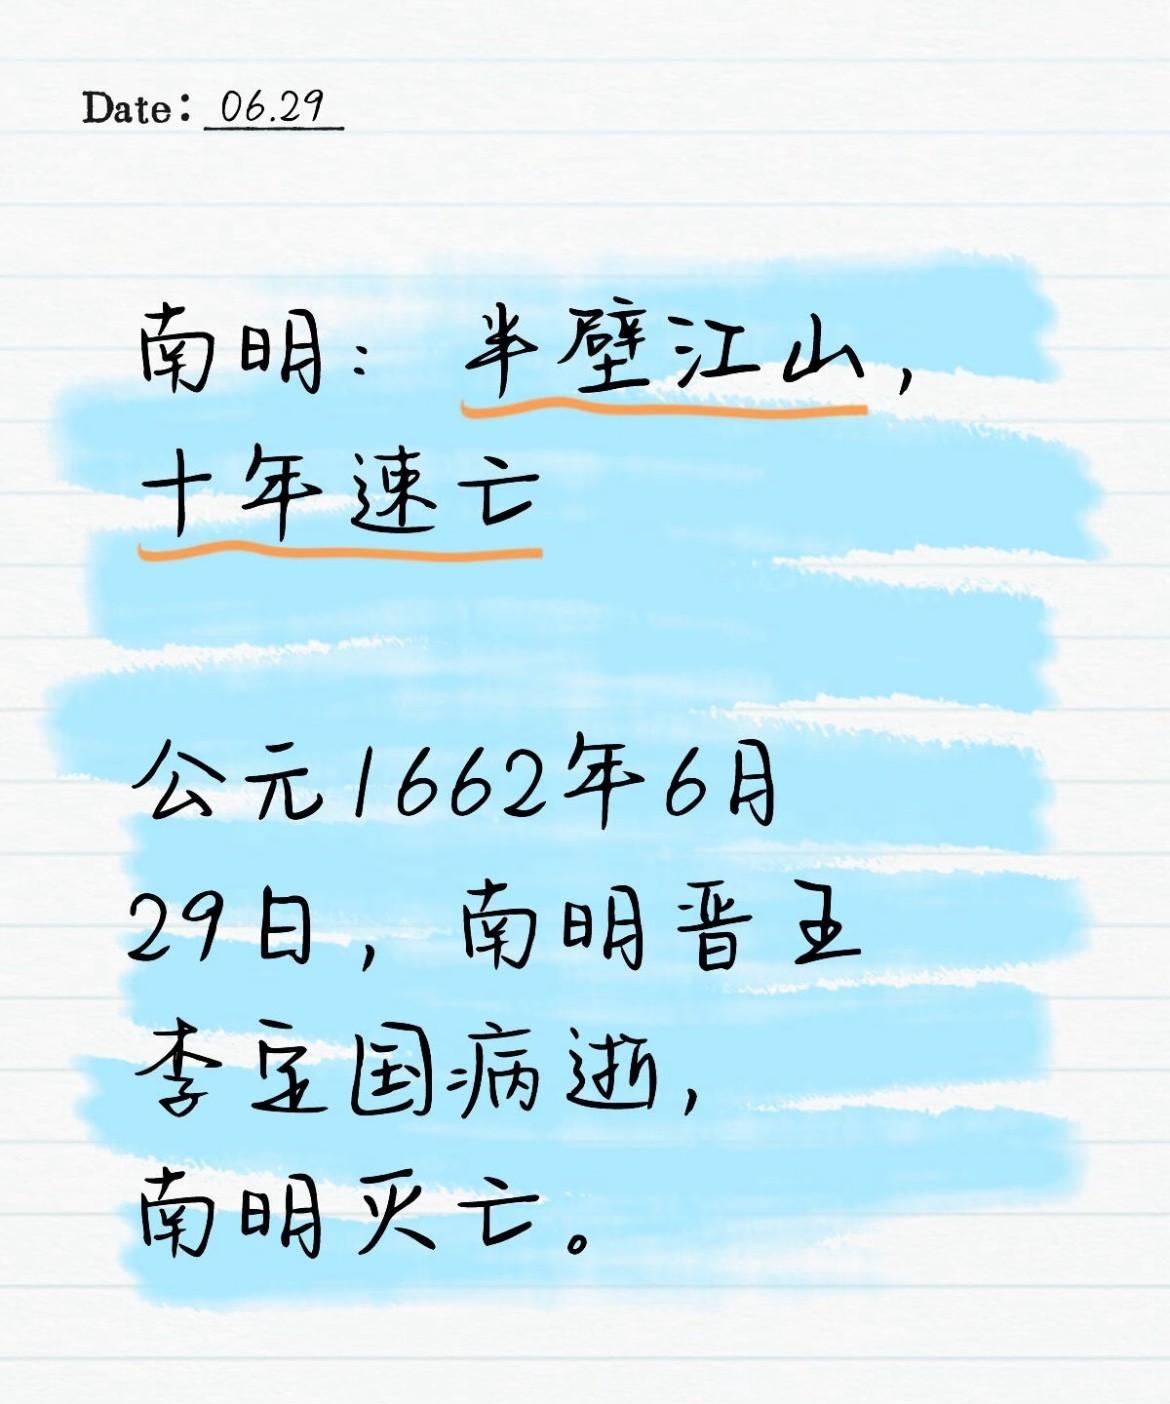 Date: 06.29
南明：半壁江山，
十年速亡
公元1662年6月
29日，南明晋王
李定国病逝，
南明灭亡。